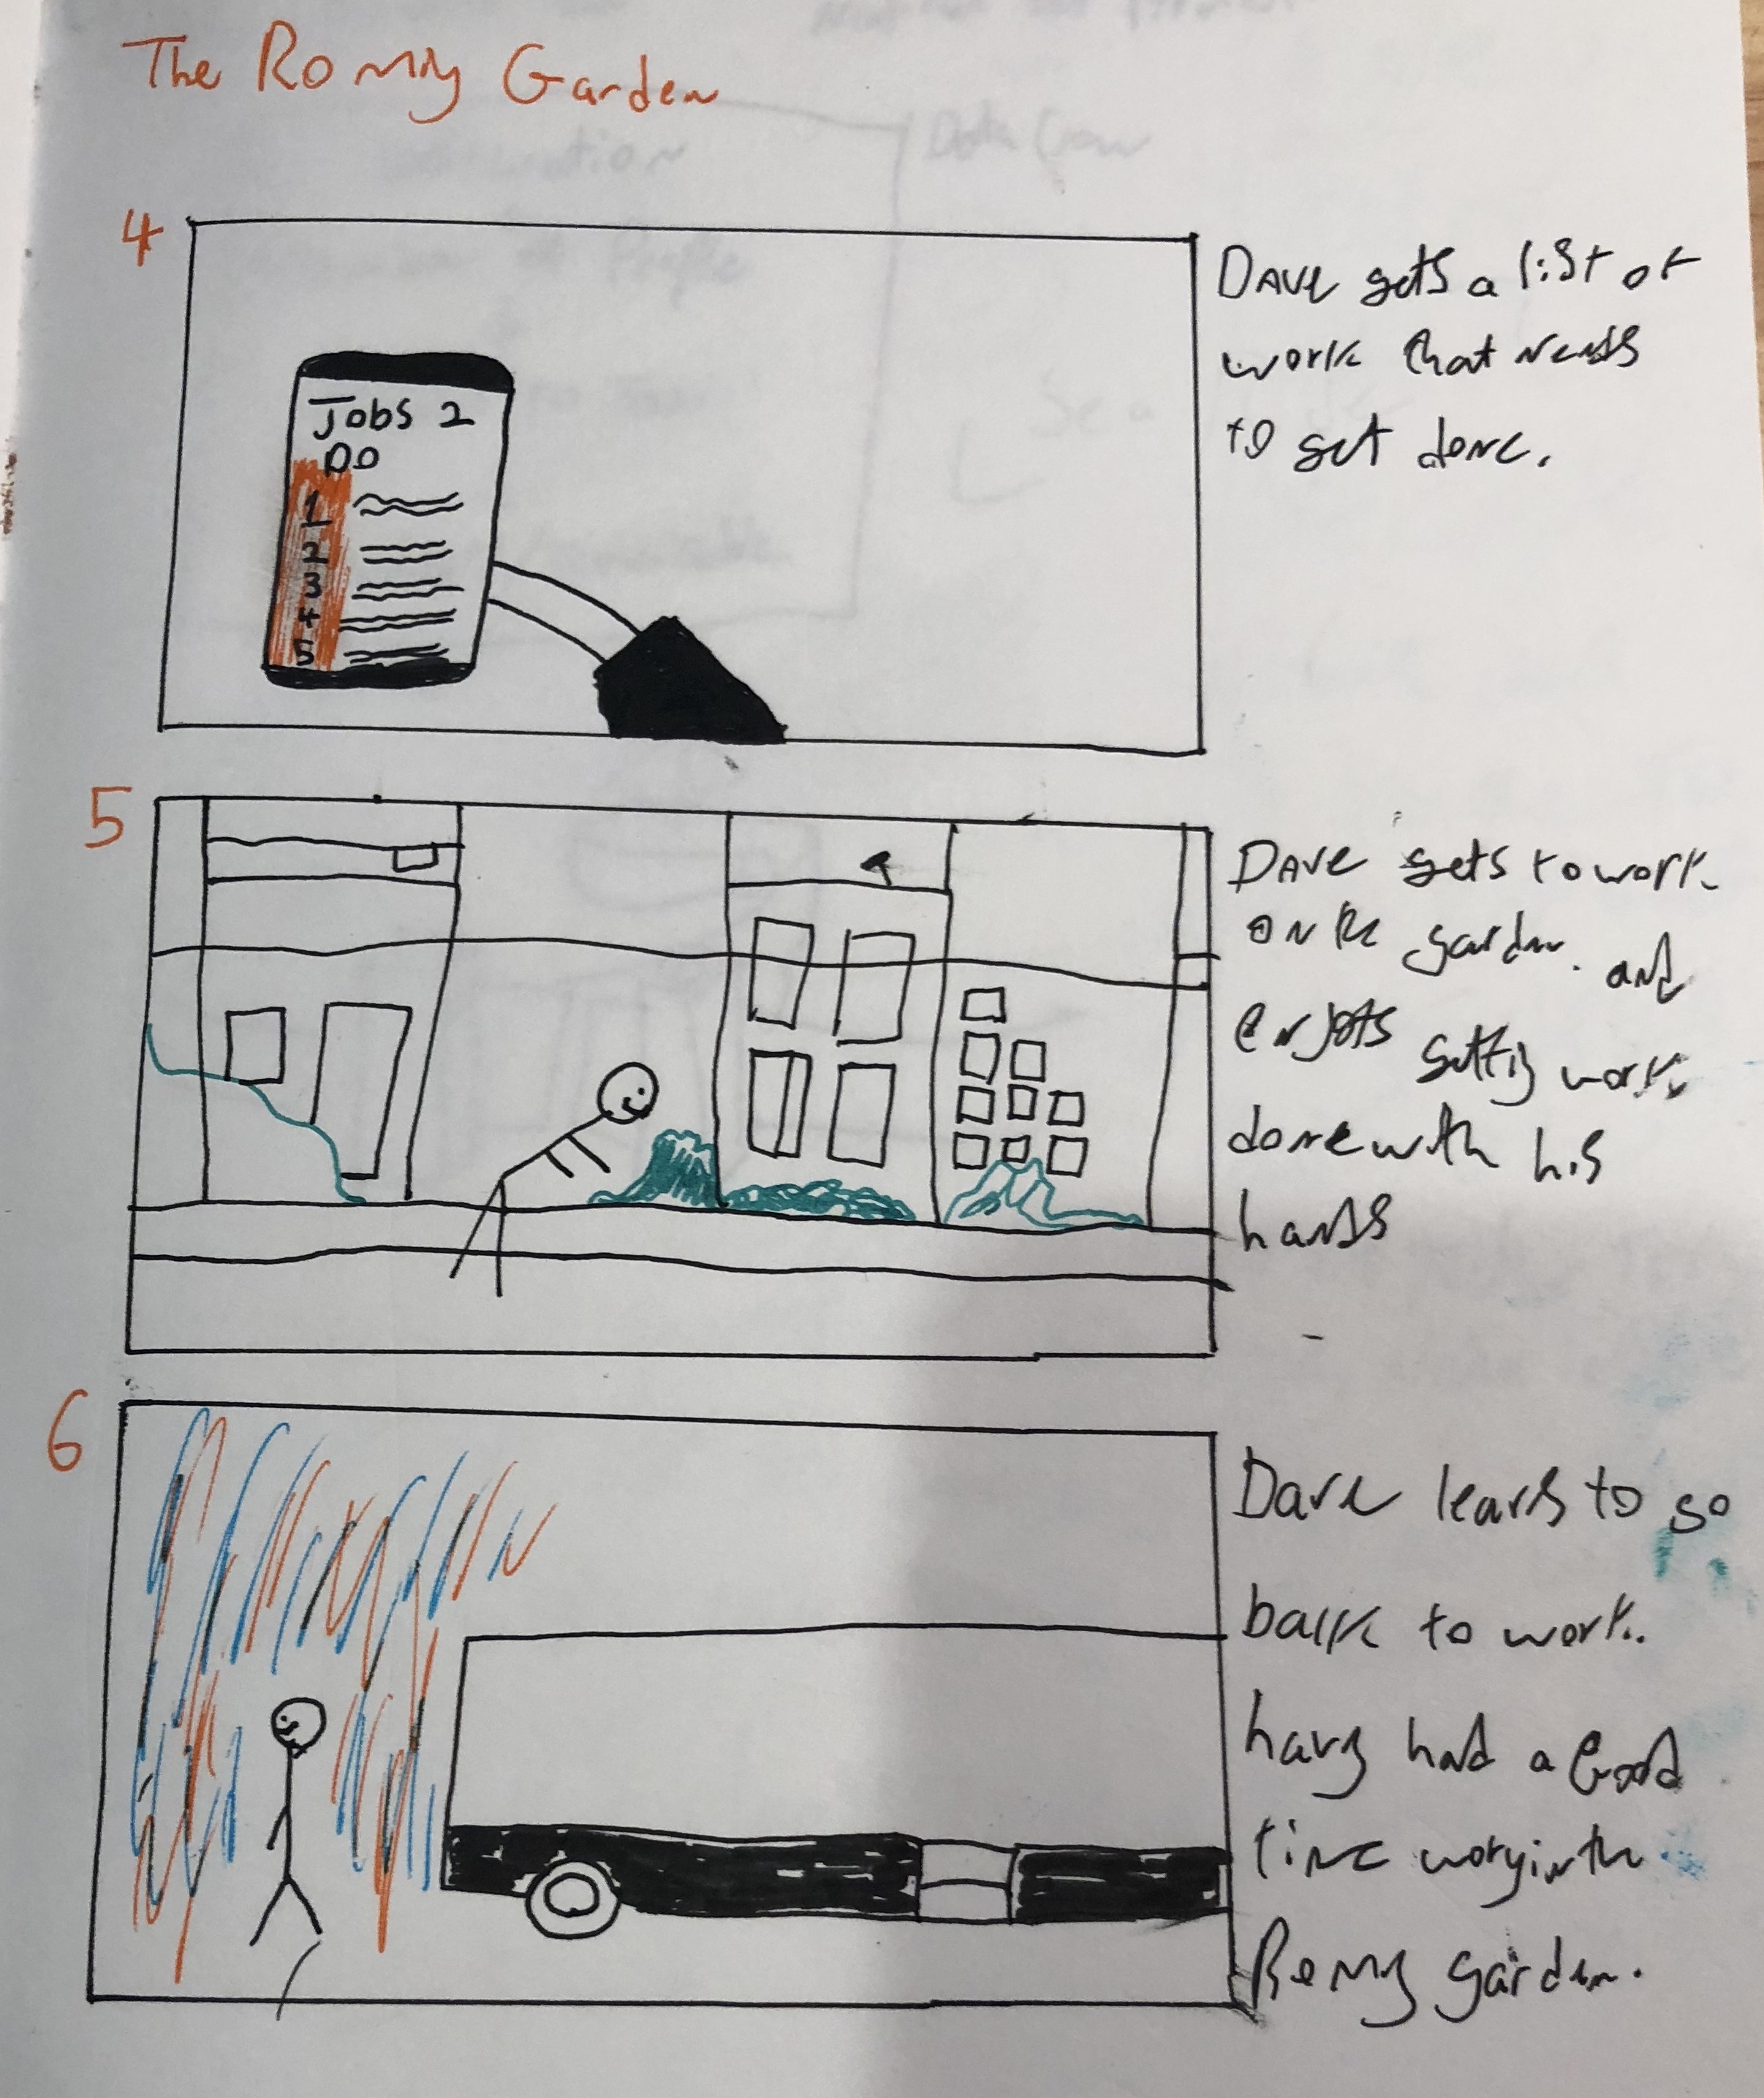 The Romy Garden
4
Dave gets a list of
work that needs
to get done.
Jobs 2
DO
1
2
3
4
5
5
Dave gets to work
on the garden. and
enjoys getting work
done with his
hands
6
Dave leaves to go
back to work.
having had a Good
time in the
Romy garden.